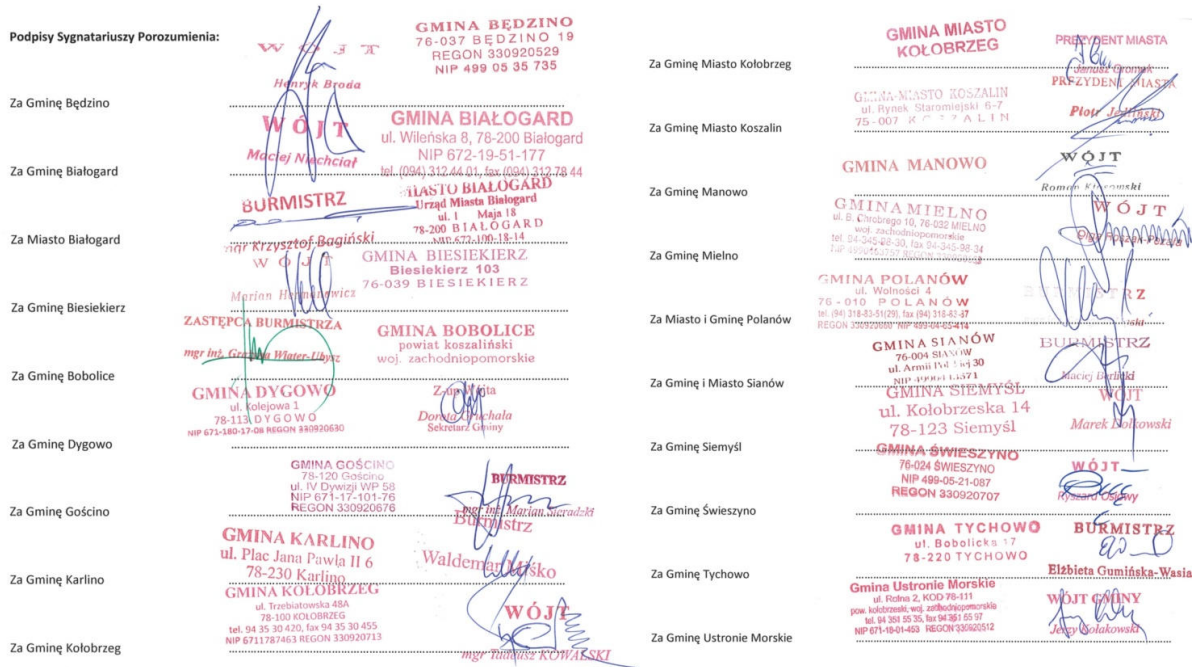 Podpisy Sygnatariuszy Porozumienia:
WÓJT
Henryk Broda
GMINA BĘDZINO
76-037 BĘDZINO 19
REGON 330920529
NIP 499 05 35 735
Za Gminę Będzino
WÓJT
Maciej Niechciał
GMINA BIAŁOGARD
ul. Wileńska 8, 78-200 Białogard
NIP 672-19-51-177
tel. (094) 312 44 01, fax (094) 312 78 44
Za Gminę Białogard
BURMISTRZ
mgr Krzysztof Bagiński
MIASTO BIAŁOGARD
Urząd Miasta Białogard
ul. 1 Maja 18
78-200 BIAŁOGARD
NIP 672-100-18-14
Za Miasto Białogard
WÓJT
Marian
GMINA BIESIEKIERZ
Biesiekierz 103
76-039 BIESIEKIERZ
Za Gminę Biesiekierz
ZASTĘPCA BURMISTRZA
mgr inż. Wiater-Ubysz
GMINA BOBOLICE
powiat koszaliński
woj. zachodniopomorskie
Za Gminę Bobolice
GMINA DYGOWO
ul. Kolejowa 1
78-113 DYGOWO
NIP 671-180-17-08 REGON 330920630
Z-up Wójta
Dorota
Sekretarz Gminy
Za Gminę Dygowo
GMINA GOŚCINO
78-120 Gościno
ul. IV Dywizji WP 58
NIP 671-17-101-76
REGON 330920676
BURMISTRZ
mgr inż. Marian Sieradzki
Za Gminę Gościno
GMINA KARLINO
ul. Plac Jana Pawła II 6
78-230 Karlino
Burmistrz
Waldemar Miśko
Za Gminę Karlino
GMINA KOŁOBRZEG
ul. Trzebiatowska 48A
78-100 KOŁOBRZEG
tel. 94 35 30 420, fax 94 35 30 455
NIP 6711787463 REGON 330920713
WÓJT
mgr Tadeusz KOWALSKI
Za Gminę Kołobrzeg
GMINA MIASTO
KOŁOBRZEG
PREZYDENT MIASTA
Janusz Gromek
Za Gminę Miasto Kołobrzeg
GMINA-MIASTO KOSZALIN
ul. Rynek Staromiejski 6-7
75-007 KOSZALIN
PREZYDENT MIASTA
Piotr Jedliński
Za Gminę Miasto Koszalin
GMINA MANOWO
WÓJT
Roman
Za Gminę Manowo
GMINA MIELNO
ul. B. Chrobrego 10, 76-032 MIELNO
woj. zachodniopomorskie
tel. 94-345-98-30, fax 94-345-98-34
WÓJT
Olga
Za Gminę Mielno
GMINA POLANÓW
ul. Wolności 4
76-010 POLANÓW
tel. (94) 318-83-51(29), fax (94)
REGON NIP
BURMISTRZ
Za Miasto i Gminę Polanów
GMINA SIANÓW
76-004 SIANÓW
ul. Armii 30
NIP
BURMISTRZ
Maciej Berlicki
Za Gminę i Miasto Sianów
GMINA SIEMYŚL
ul. Kołobrzeska 14
78-123 Siemyśl
WÓJT
Marek Dołkowski
Za Gminę Siemyśl
GMINA ŚWIESZYNO
76-024 ŚWIESZYNO
NIP 499-05-21-087
REGON 330920707
WÓJT
Ryszard Osiowy
Za Gminę Świeszyno
GMINA TYCHOWO
ul. Bobolicka 17
78-220 TYCHOWO
BURMISTRZ
Elżbieta Gumińska-Wasia
Za Gminę Tychowo
Gmina Ustronie Morskie
ul. Rolna 2, KOD 78-111
pow. kołobrzeski, woj. zachodniopomorskie
tel. 94 351 55 35, fax 94 351 55 97
NIP 671-18-01-453 REGON 330920512
WÓJT GMINY
Jerzy Kołakowski
Za Gminę Ustronie Morskie